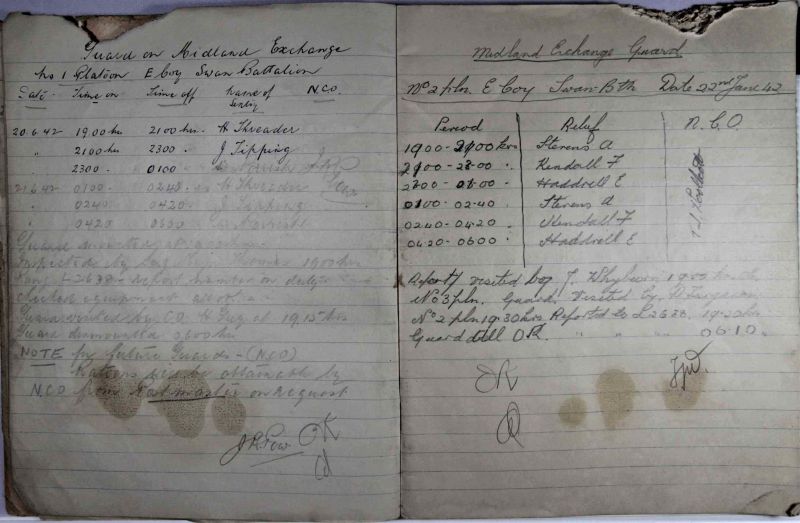 Guard on Midland Exchange
No 1 Platoon E Coy Swan Battalion
Date Time on Time off Name of Sentry N.C.O.
20.6.42 1900 hrs 2100 hrs. H Shreader
" 2100 hrs 2300 . J Tipping
" 2300 . 0100
21.6.42 0100 0240 H Shreader
0240 0420 J Tipping
0420 0600
Guard mounted at
Inspected by 1900 hrs
Rang L2638 - Report number on duty
checked equipment all OK.
Guard visited by C.O. H Guy at 1915 hrs
Guard dismounted 0600 hrs
NOTE for future Guards - (N.C.O)
Rations will be obtainable by
N.C.O from on request
J R Pew OK
Midland Exchange Guard
No 2 pln. E Coy Swan Bth Date 22nd June 42
Period Relief N.C.O.
1900 - 2100 hrs Stevens A
2100 - 2300 . Kendall F
2300 - 0100 . Haddrell E
0100 - 02.40 . Stevens A
02.40 - 04.20 . Kendall F
04.20 - 0600 . Haddrell E
Report/ visited by J. 19.00 hrs
No 3 pln. Guard. Visited by
No 2 pln 19.30 hrs. Reported to L2638. 19.30 hrs
Guard all OK. " " " 06.10.
OK